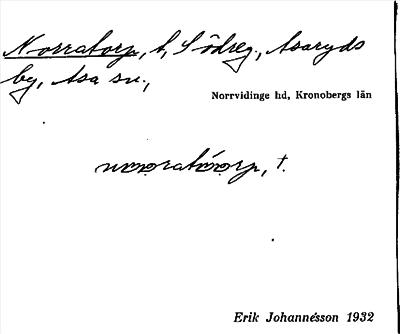 Norratorp, t, Södreg., Asaryds
by, Asa sn.,
Norrvidinge hd, Kronobergs län
t.
Erik Johannésson 1932